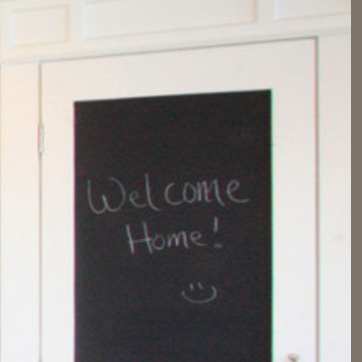 Welcome
Home!